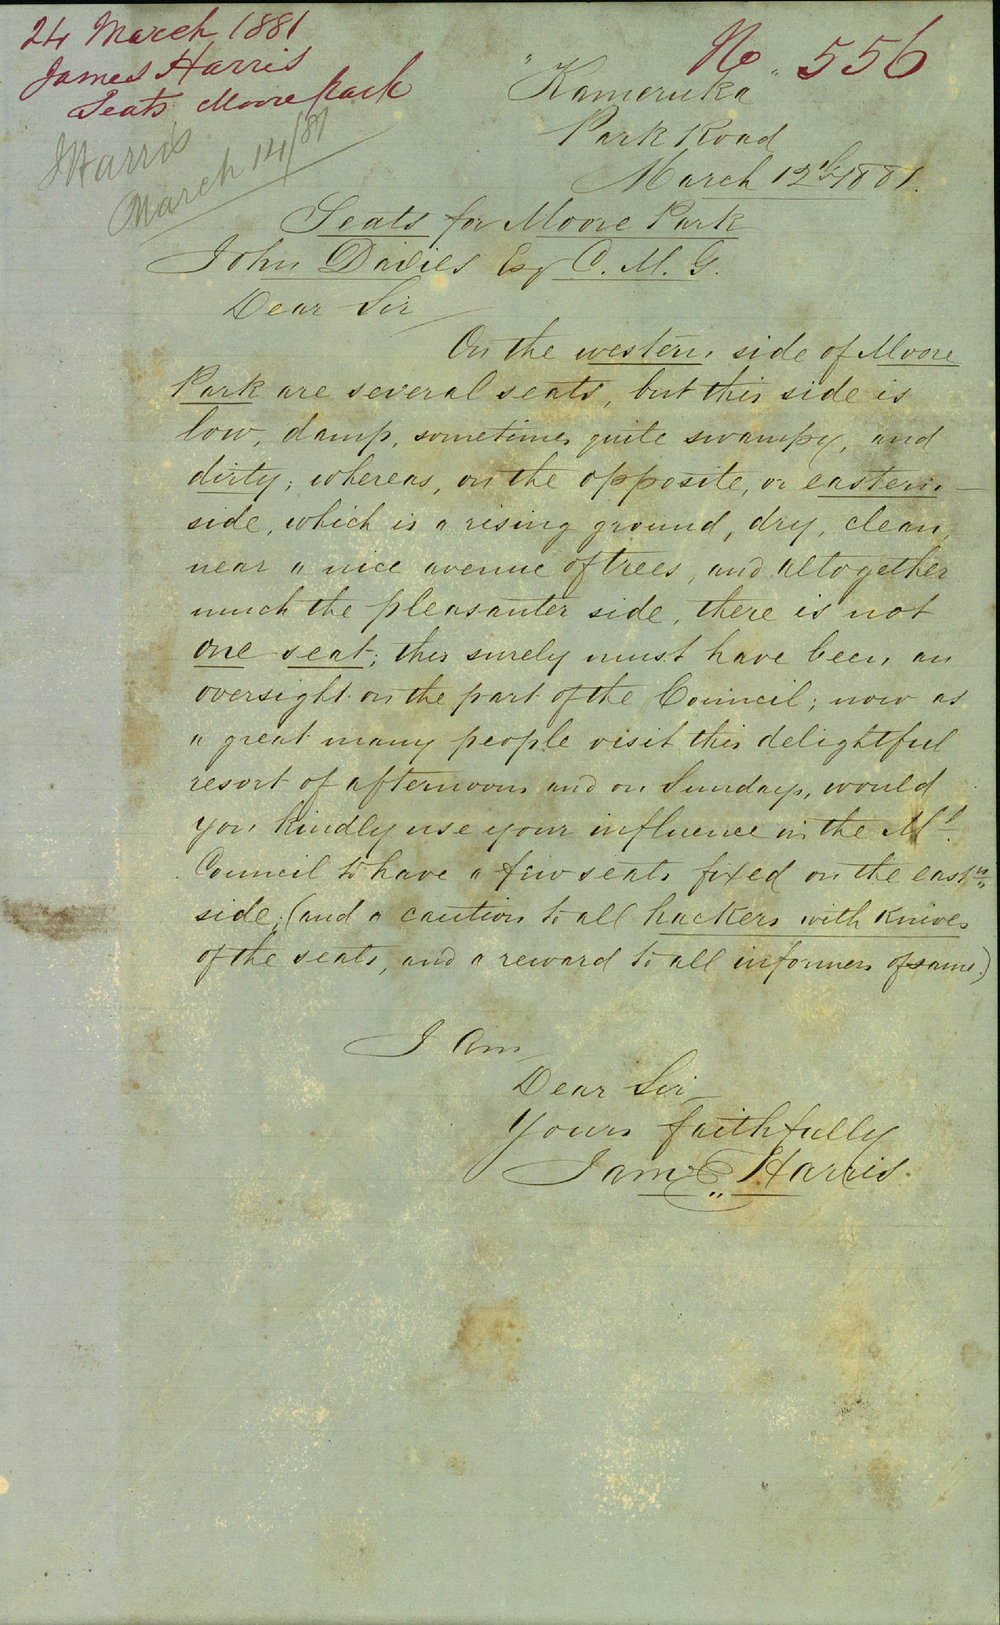 24 March 1881
James Harris
Seats Moore Park
No. 556
J Harris
March 14/81
"Kameruka
Park Road
March 12th 1881.
Seats for Moore Park
John Davies Esq C. M. G.
Dear Sir
On the western side of Moore
Park are several seats, but this side is
low, damp, sometimes quite swampy, and
dirty; whereas, on the opposite, or eastern
side, which is a rising ground, dry, clean,
near a nice avenue of trees, and altogether
much the pleasanter side, there is not
one seat; this surely must have been an
oversight on the part of the Council; now as
a great many people visit this delightful
resort of afternoons and on Sundays, would
you kindly use your influence in the Ml.
Council to have a few seats fixed on the eastrn
side, (and a caution to all hackers with knives
of the seats, and a reward to all informers of same.)
I am
Dear Sir
Yours faithfully
Jams Harris.